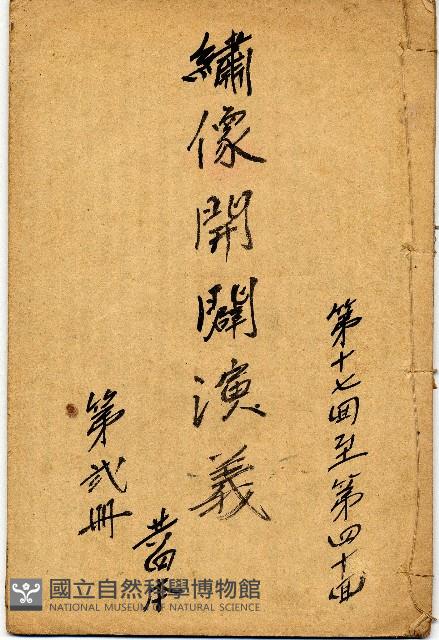 第十七回至第四十回
繡像開闢演義
第弍冊
國立自然科學博物館
NATIONAL MUSEUM OF NATURAL SCIENCE